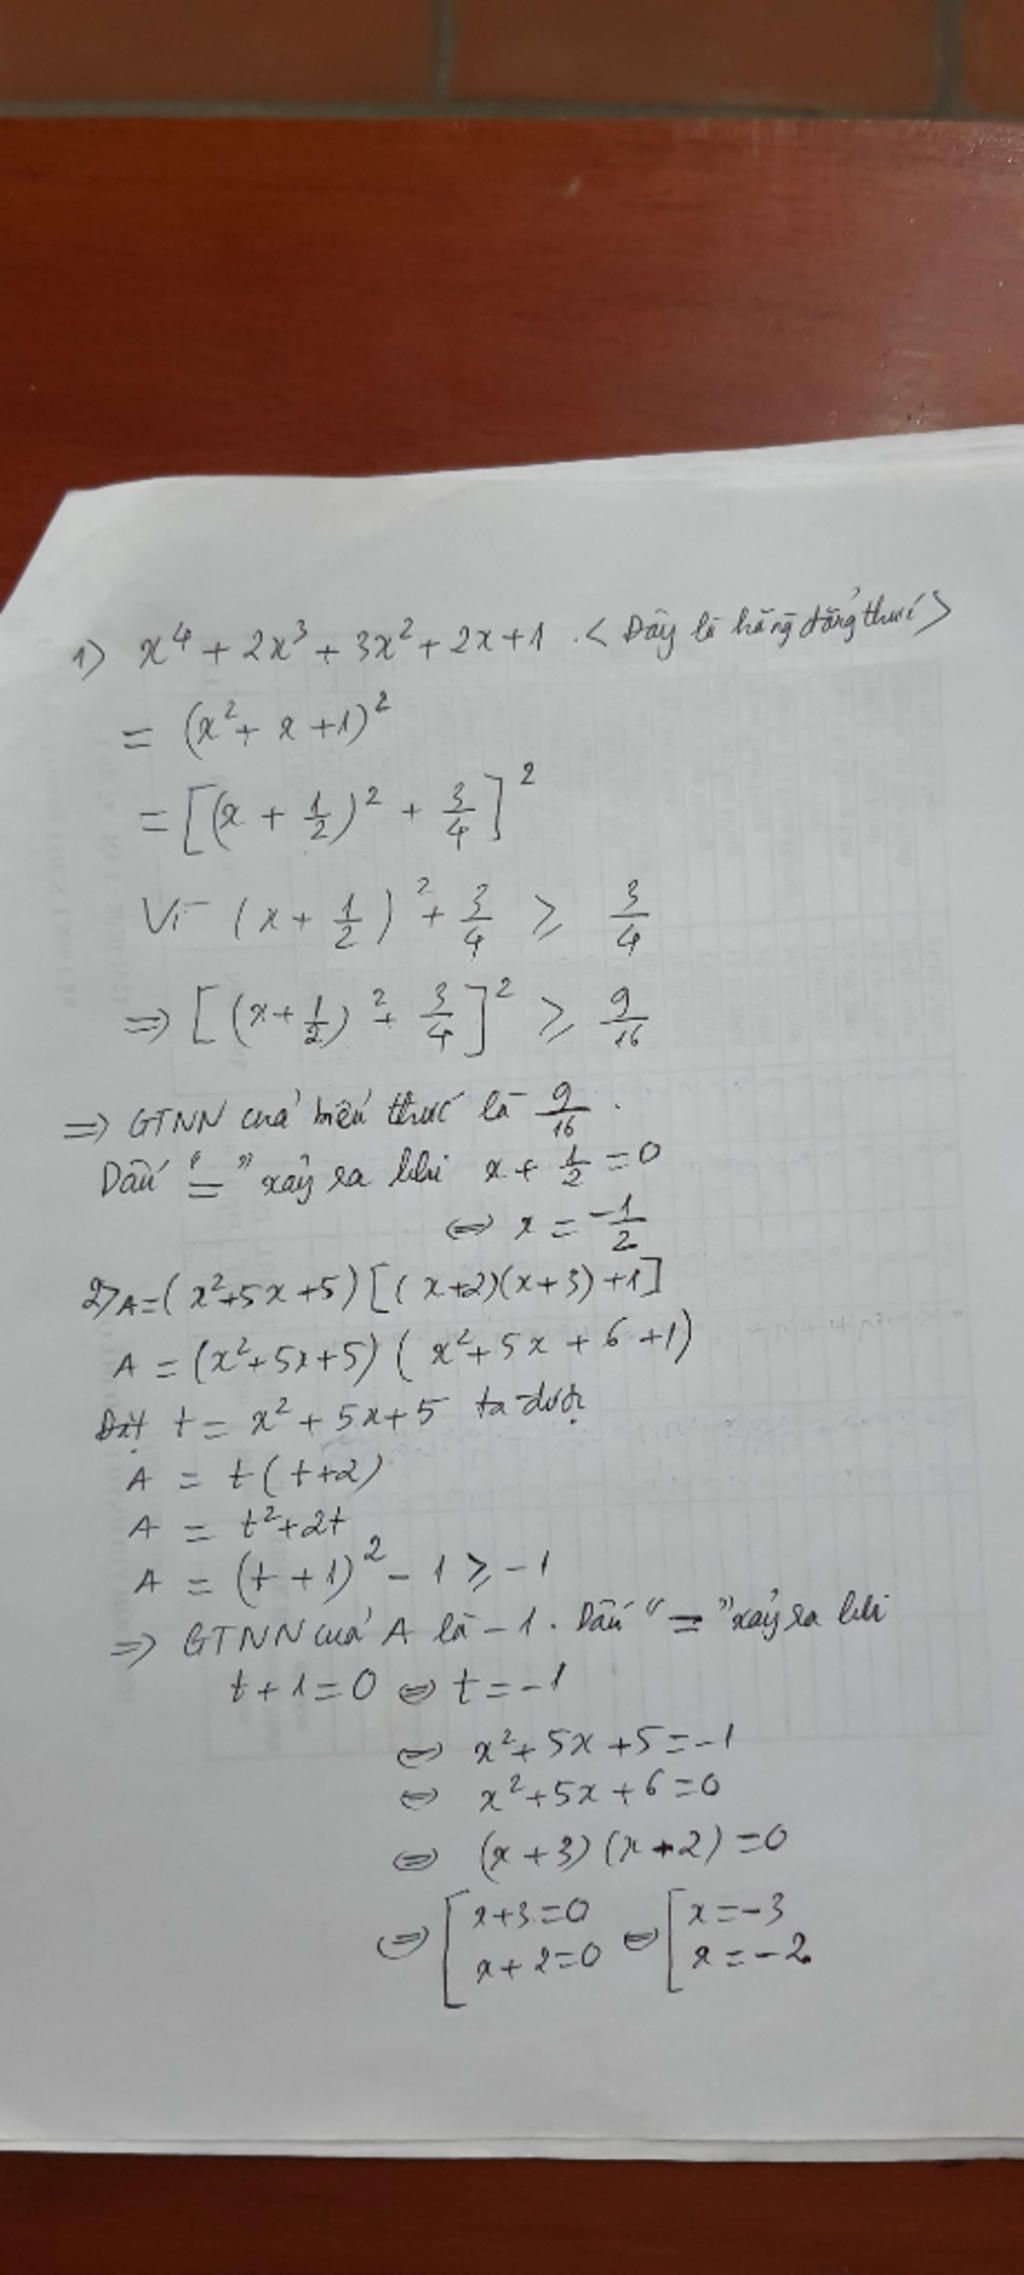 1) x⁴ + 2x³ + 3x² + 2x + 1 . < Đây là hằng đẳng thức >
= (x² + x + 1)²
= [(x + 1/2)² + 3/4]²
Vì (x + 1/2)² + 3/4 ≥ 3/4
⇒ [(x + 1/2)² + 3/4]² ≥ 9/16
⇒ GTNN của biểu thức là 9/16 .
Dấu "=" xảy ra khi x + 1/2 = 0
⇔ x = -1/2
2) A = (x² + 5x + 5) [(x+2)(x+3) + 1]
A = (x² + 5x + 5) (x² + 5x + 6 + 1)
Đặt t = x² + 5x + 5 ta được
A = t(t+2)
A = t² + 2t
A = (t + 1)² - 1 ≥ -1
⇒ GTNN của A là -1. Dấu "=" xảy ra khi
t + 1 = 0 ⇔ t = -1
⇔ x² + 5x + 5 = -1
⇔ x² + 5x + 6 = 0
⇔ (x + 3)(x + 2) = 0
⇔ [ x + 3 = 0 ⇔ [ x = -3
x + 2 = 0 x = -2